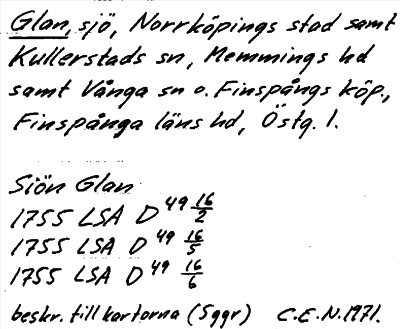 Glan, sjö, Norrköpings stad samt
Kullerstads sn, Memmings hd
samt Vånga sn o. Finspångs köp.,
Finspånga läns hd, Östg. l.
Siön Glan
1755 LSA D 49 16/2
1755 LSA D 49 16/5
1755 LSA D 49 16/6
beskr. till kartorna (5 ggr) C.E.N. 1971.